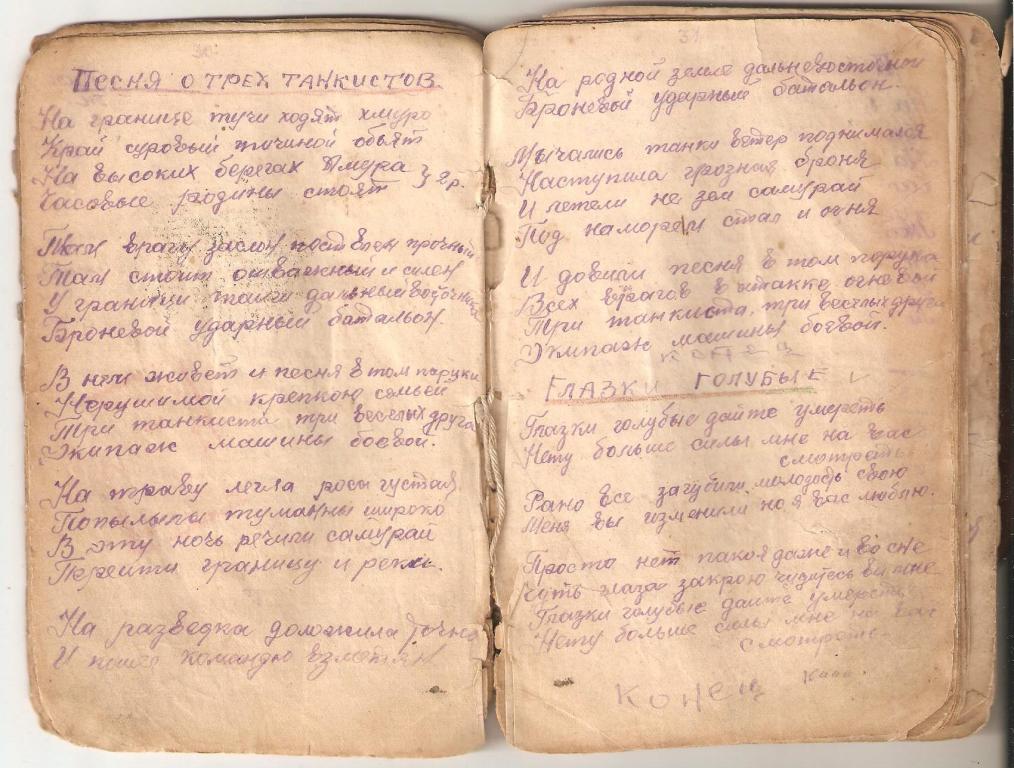 30.
ПЕСНЯ О ТРЕХ ТАНКИСТОВ
На границе тучи ходят хмуро
Край суровый тишиной обьят
На высоких берегах Амура } 2 р.
Часовые родины стоят
Там врагу заслон поставлен прочный
Там стоит отважный и силен
У границы тайги
Броневой ударный батальон.
В неи живет и песня в том паруки
Нерушимой крепкою семьей
Три танкиста три веселых друга
Экипаж машины боевой.
На траву легла роса густая
туманны широко
В эту ночь речили самураи
Перейти границу и реки.
На разведка доложила точно
И пошел командою взметян
31.
На родной земле дальневосточной
Броневой ударный батальон.
Мычались танки ветер поднимался
Наступила грозная броня
И летели на зем самураи
Под наморем стал и огня
И довили песня в том порука
Всех врагов в атаке огневой
Три танкиста, три веселых друга
Экипаж машины боевой.
конец
ГЛАЗКИ ГОЛУБЫЕ
Глазки голубые дайте умереть
Нету больше силы мне на вас
смотреть
Рано все загубили молодобь свою
Меня вы изменили но я вас люблю.
Просто нет покоя даже и во сне
Чуть глаза закрою чудитесь вы мне
Глазки голубые дайте умереть
Нету больше силы мне на вас
смотреть.
Конец